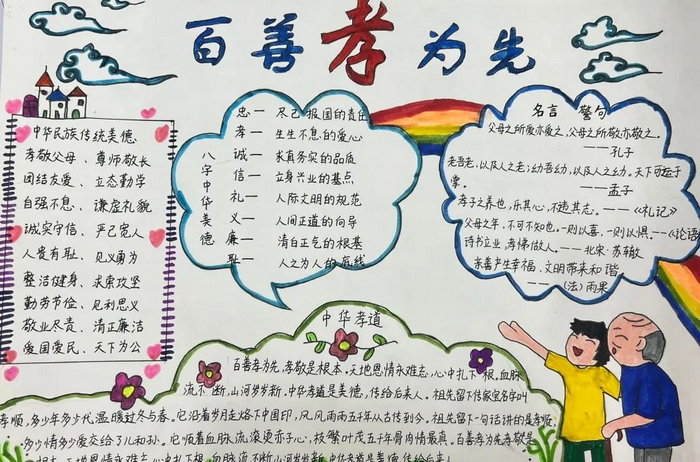 百善孝为先
中华民族传统美德
孝敬父母、尊师敬长
团结友爱、立态勤学
自强不息、谦虚礼貌
诚实守信、严己宽人
人贵有耻、见义勇为
整洁健身、求索攻坚
勤劳节俭、见利思义
敬业尽责、清正廉洁
爱国爱民、天下为公
八字中华美德
忠一尽己报国的责任
孝一生生不息的爱心
诚一求真务实的品质
信一立身兴业的基点
礼一人际文明的规范
义一人间正道的向导
廉一清白正气的根基
耻一人之为人的底线
名言警句
父母之所爱亦爱之,父母之所敬亦敬之。
——孔子
老吾老,以及人之老;幼吾幼,以及人之幼。天下可运于
掌。 ——孟子
孝子之养也,乐其心,不违其志。——《礼记》
父母之年,不可不知也。一则以喜,一则以惧。——《论语
诗书立业,孝悌做人。——北宋·苏辙
亲善产生幸福,文明带来和谐。
——(法)雨果
中华孝道
百善孝为先,孝敬是根本。天地恩情永难忘,心中扎下根。血脉
流不断,山河岁岁新。中华孝道是美德,传给后来人。祖先留下传家宝名字叫
孝顺,多少年多少代温暖过冬与春。它沿着岁月走烙下中国印,风风雨雨五千年从古传到今。祖先留下一句话讲的是孝顺,
多少情多少爱交给了儿和孙。它顺着血脉流滚烫赤子心,枝繁叶茂五千年骨肉情最真。百善孝为先孝敬是
根本。天地恩情永难忘心中扎下根,血脉流不断山河岁岁新,中华孝道是美德传给后来人。